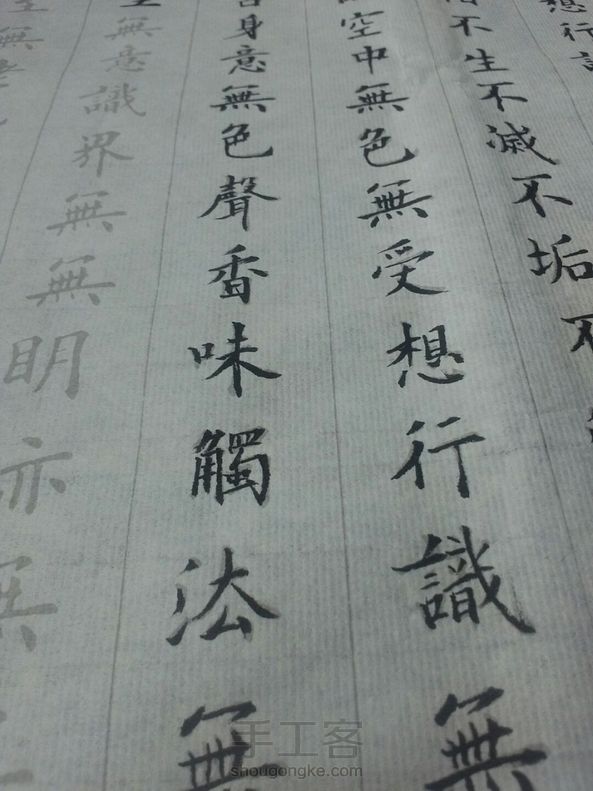 想行
不生不滅不垢不
空中無色無受想行識無
身意無色聲香味觸法無
無意識界無無明亦無
無
手工客
shougongke.com